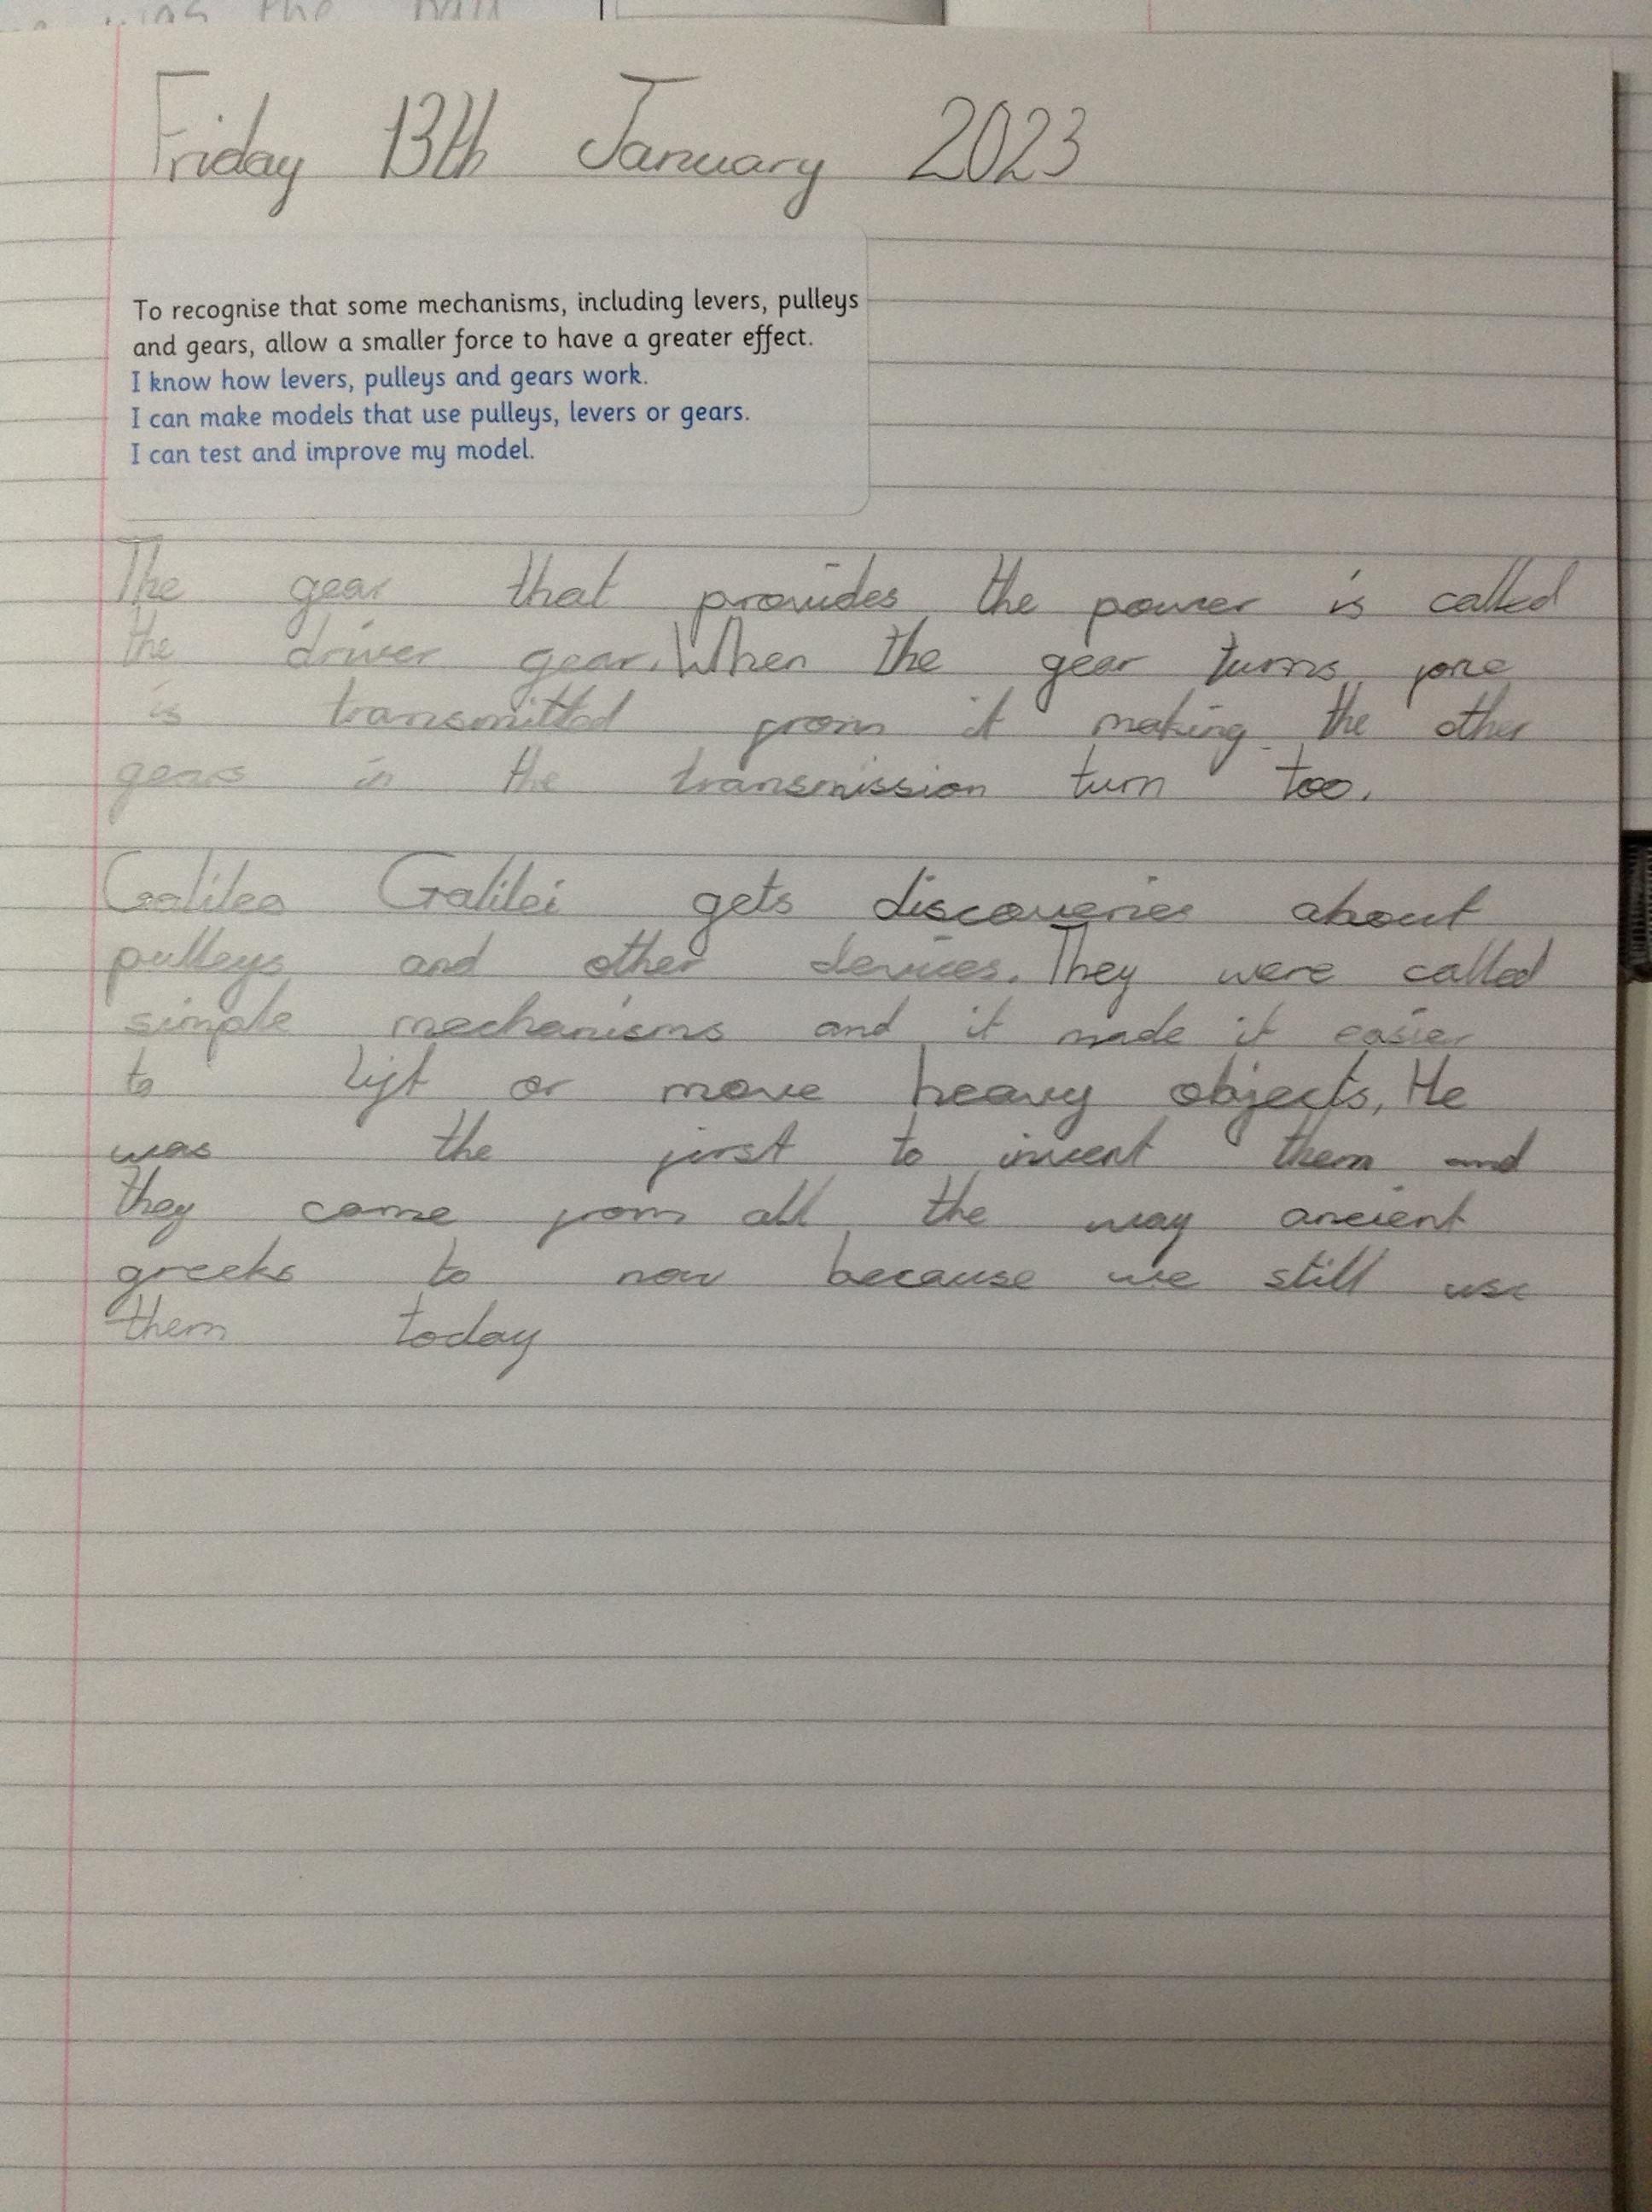 Friday 13th January 2023
To recognise that some mechanisms, including levers, pulleys
and gears, allow a smaller force to have a greater effect.
I know how levers, pulleys and gears work.
I can make models that use pulleys, levers or gears.
I can test and improve my model.
The gear that provides the power is called
the driver gear. When the gear turns, force
is transmitted from it making the other
gears in the transmission turn too.
Galileo Galilei gets discoveries about
pulleys and other devices. They were called
simple mechanisms and it made it easier
to lift or move heavy objects, He
was the first to invent them and
they come from all the way ancient
greeks to now because we still use
them today